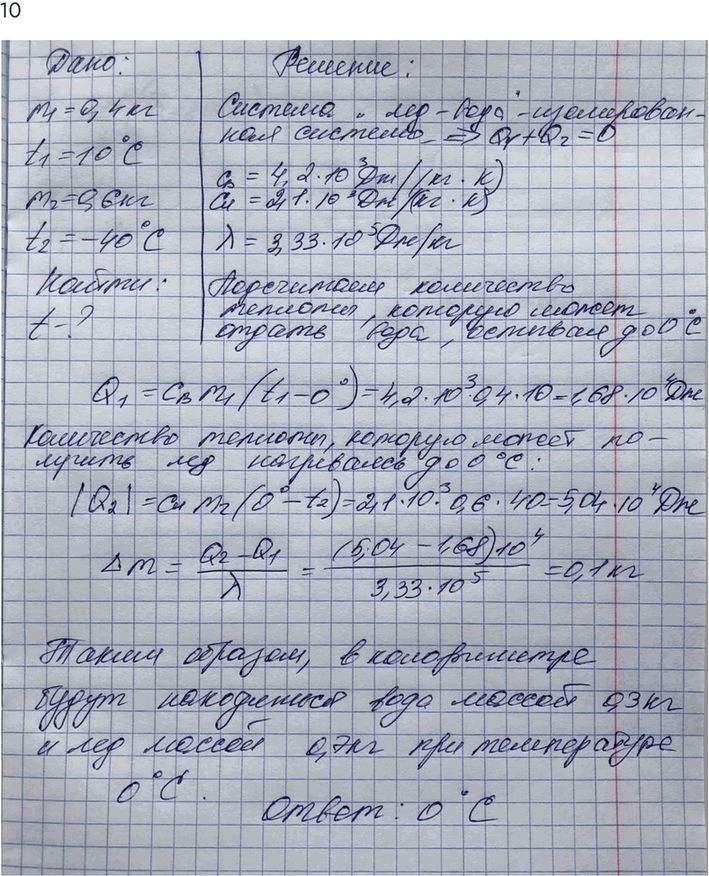 10
Дано:
m₁ = 0,4 кг
t₁ = 10°C
m₂ = 0,6 кг
t₂ = -40°C
Найти:
t - ?
Решение:
Система „лед - вода" - изолирован-
ная система ⇒ Q₁ + Q₂ = 0
cв = 4,2·10³ Дж/(кг·К)
cл = 2,1·10³ Дж/(кг·К)
λ = 3,33·10⁵ Дж/кг
Подсчитаем количество
теплоты, которую может
отдать вода, остывая до 0°C
Q₁ = cв m₁ (t₁ - 0°) = 4,2·10³·0,4·10 = 1,68·10⁴ Дж
Количество теплоты, которую может по-
лучить лед нагреваясь до 0°C:
|Q₂| = cл m₂ (0° - t₂) = 2,1·10³·0,6·40 = 5,04·10⁴ Дж
Δm = (Q₂ - Q₁)/λ = (5,04 - 1,68)10⁴/3,33·10⁵ = 0,1 кг
Таким образом, в калориметре
будут находиться вода массой 0,3 кг
и лед массой 0,7 кг при температуре
0°C.
Ответ: 0°C